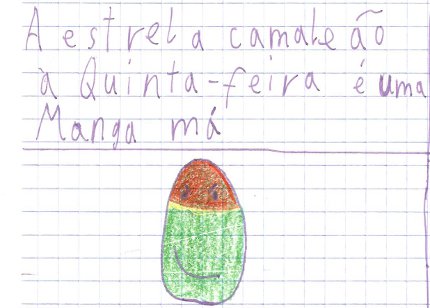 A estrela camaleão
à Quinta-feira é uma
Manga má